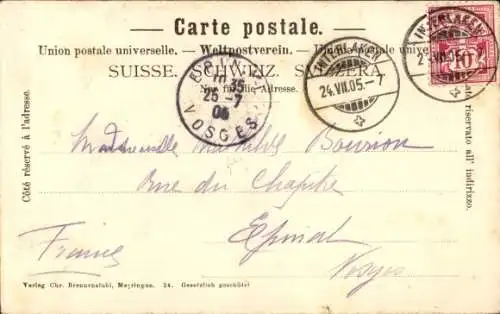 Carte postale.
Union postale universelle. — Weltpostverein. — Unione postale universale
SUISSE. SCHWEIZ. SVIZZERA.
Nur für die Adresse.
EPINAL
25 -7
05
VOSGES
INTERLAKEN
24.VII.05.-7
INTERLAKEN
24.VII.05.-7
10
Côté réservé à l'adresse.
Lato riservato all'indirizzo.
Mademoiselle Mathilde Bourion
Rue du Chapitre
Epinal
France
Vosges
Verlag Chr. Brennenstuhl, Meyringen. 24. Gesetzlich geschützt